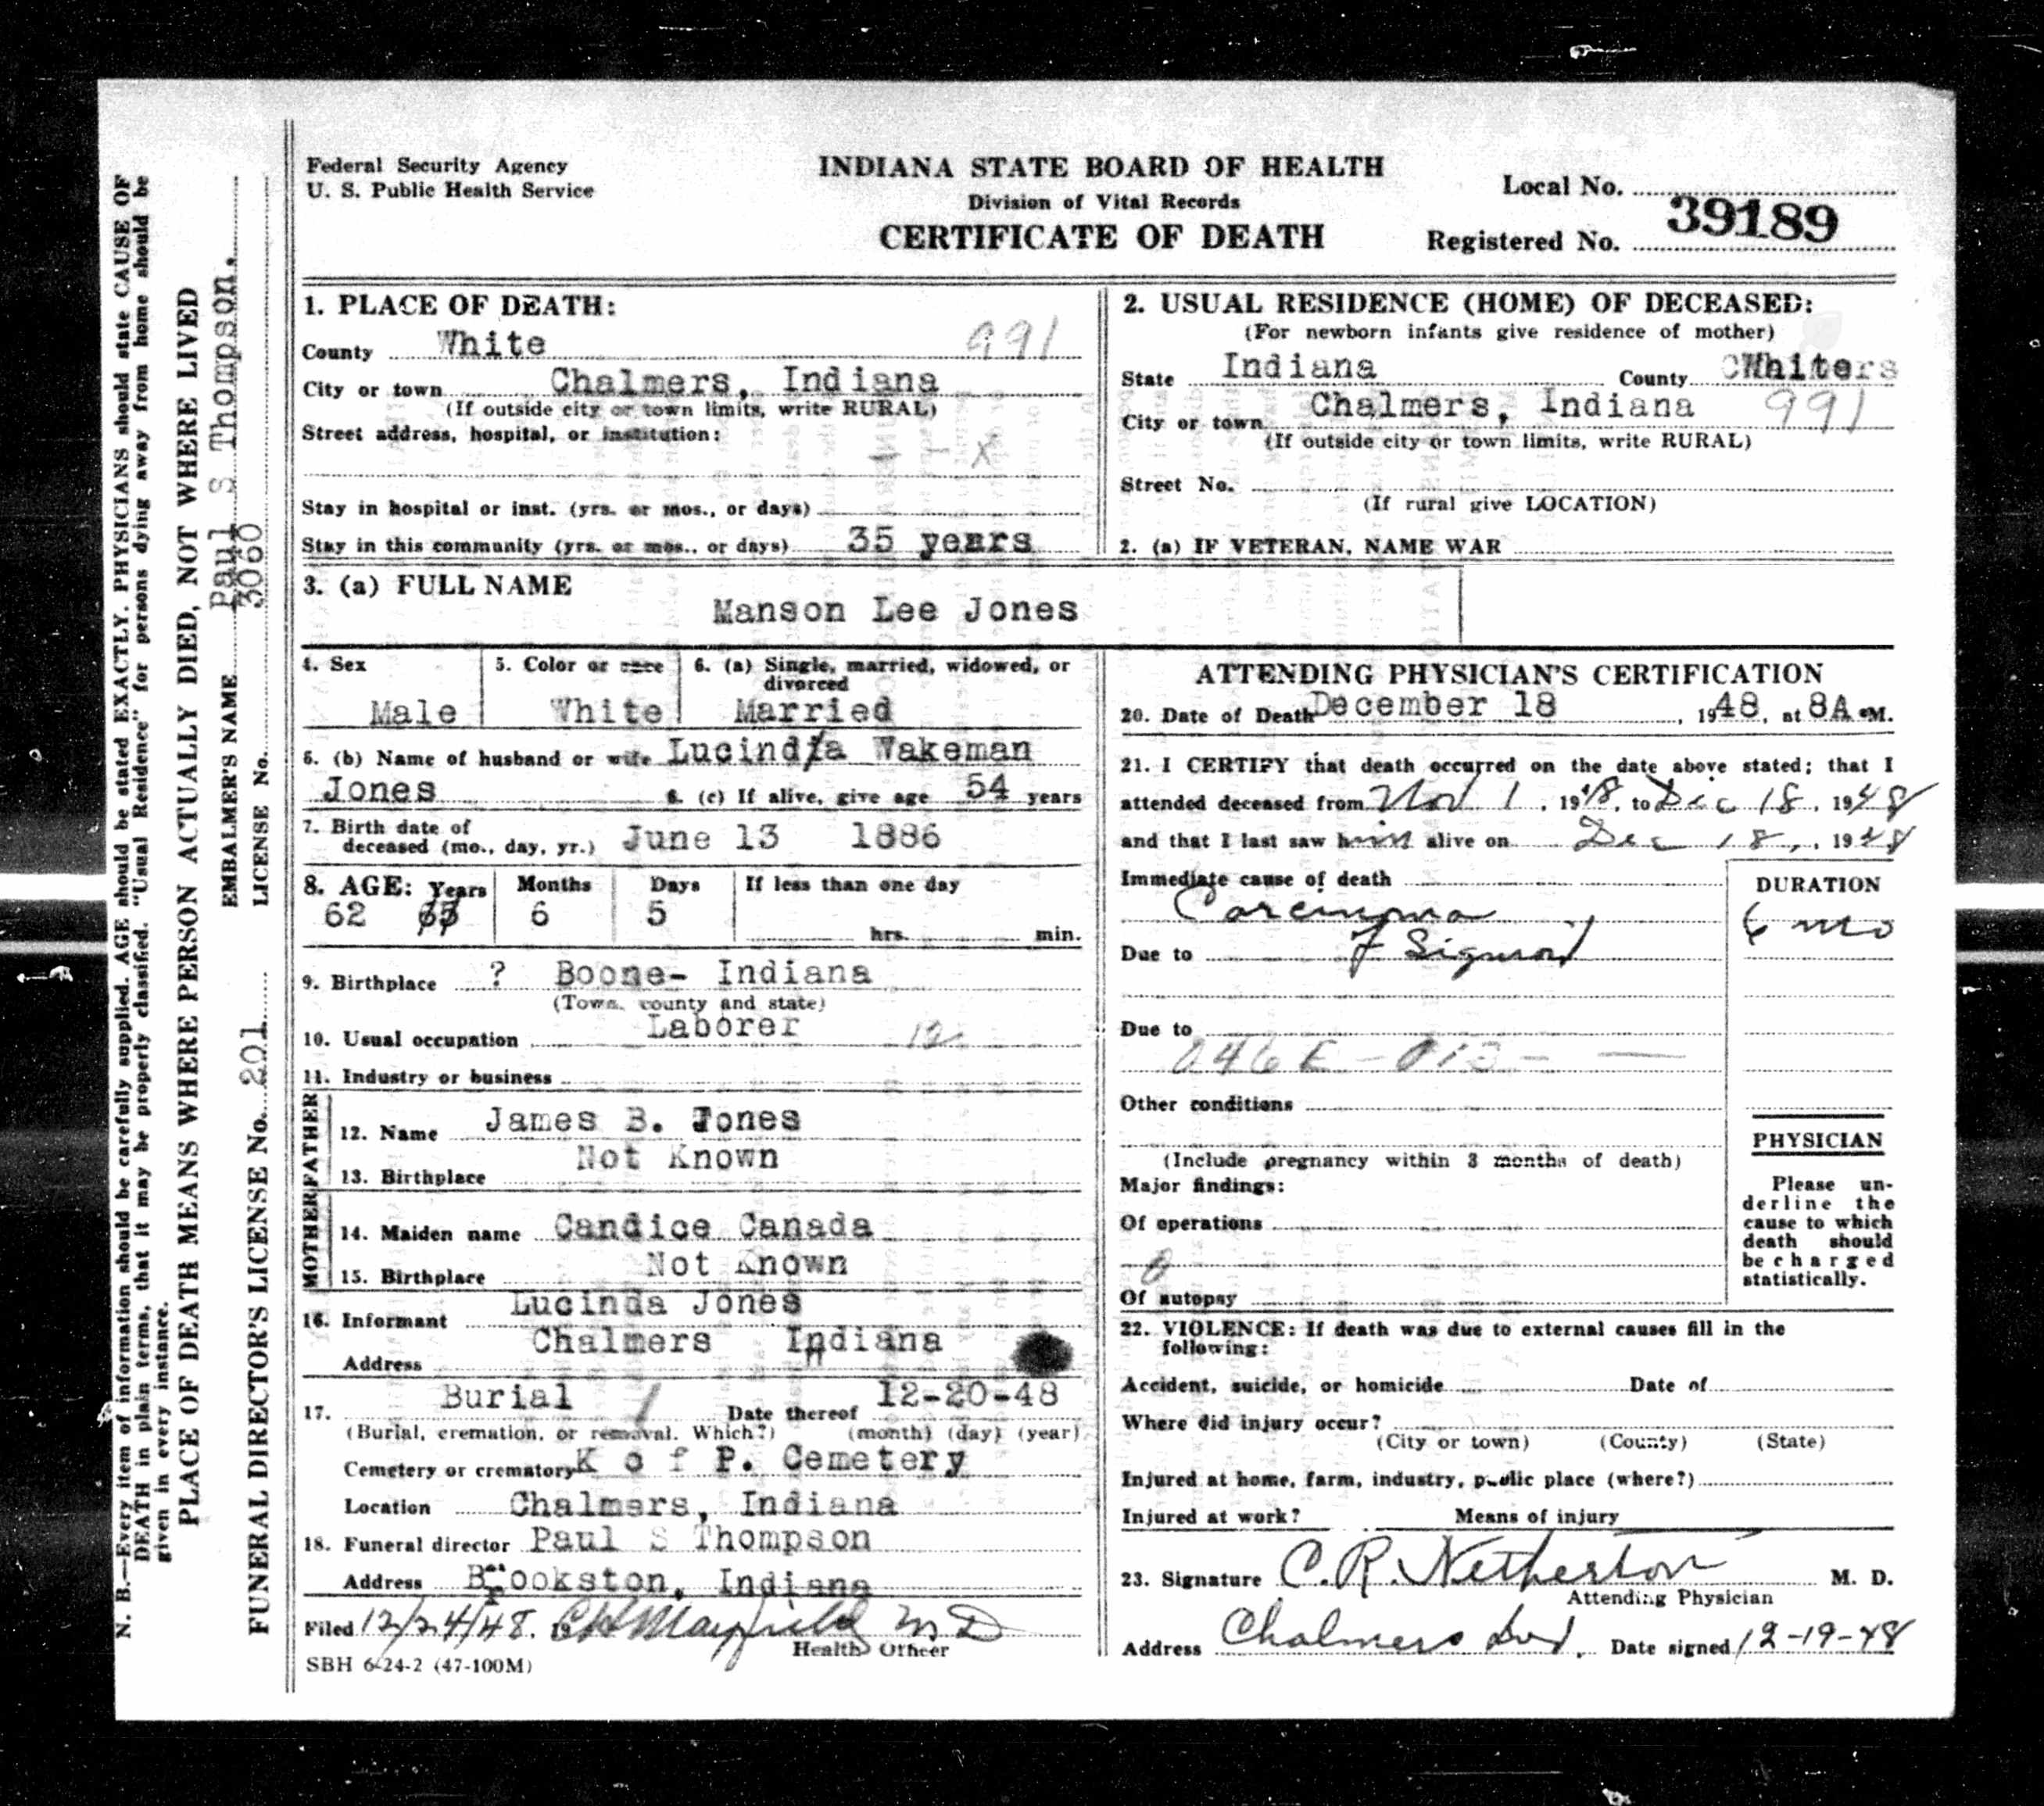 Federal Security Agency
U. S. Public Health Service
INDIANA STATE BOARD OF HEALTH
Division of Vital Records
CERTIFICATE OF DEATH
Local No.
Registered No. 39189
1. PLACE OF DEATH:
County White 991
City or town Chalmers, Indiana
(If outside city or town limits, write RURAL)
Street address, hospital, or institution:
- - X
Stay in hospital or inst. (yrs. or mos., or days)
Stay in this community (yrs. or mos., or days) 35 years
2. USUAL RESIDENCE (HOME) OF DECEASED:
(For newborn infants give residence of mother)
State Indiana County White
City or town Chalmers, Indiana 991
(If outside city or town limits, write RURAL)
Street No.
(If rural give LOCATION)
2. (a) IF VETERAN, NAME WAR
3. (a) FULL NAME
Manson Lee Jones
4. Sex
Male
5. Color or race
White
6. (a) Single, married, widowed, or
divorced
Married
6. (b) Name of husband or wife Lucinda Wakeman
Jones 6. (c) If alive, give age 54 years
7. Birth date of
deceased (mo., day, yr.) June 13 1886
8. AGE: Years Months Days If less than one day
62 6 5 hrs. min.
9. Birthplace ? Boone- Indiana
(Town, county and state)
10. Usual occupation Laborer 12
11. Industry or business
FATHER
12. Name James B. Jones
13. Birthplace Not Known
MOTHER
14. Maiden name Candice Canada
15. Birthplace Not Known
16. Informant Lucinda Jones
Address Chalmers Indiana
17. Burial / Date thereof 12-20-48
(Burial, cremation, or removal. Which?) (month) (day) (year)
Cemetery or crematory K of P. Cemetery
Location Chalmers, Indiana
18. Funeral director Paul S Thompson
Address Brookston, Indiana
Filed 12/24/48. 19 CH Mayfield MD
Health Officer
SBH 6-24-2 (47-100M)
ATTENDING PHYSICIAN'S CERTIFICATION
20. Date of Death December 18, 1948, at 8A.M.
21. I CERTIFY that death occurred on the date above stated; that I
attended deceased from Nov 1, 1948, to Dec 18, 1948
and that I last saw him alive on Dec 18, 1948
Immediate cause of death
Carcinoma
Due to of Sigmoid
Due to
046E - 013 - —
Other conditions
(Include pregnancy within 3 months of death)
Major findings:
Of operations
0
Of autopsy
DURATION
6 mo
PHYSICIAN
Please un-
derline the
cause to which
death should
be charged
statistically.
22. VIOLENCE: If death was due to external causes fill in the
following:
Accident, suicide, or homicide Date of
Where did injury occur?
(City or town) (County) (State)
Injured at home, farm, industry, public place (where?)
Injured at work? Means of injury
23. Signature C. R. Netherton M. D.
Attending Physician
Address Chalmers Ind. Date signed 12-19-48
N. B.—Every item of information should be carefully supplied. AGE should be stated EXACTLY. PHYSICIANS should state CAUSE OF
DEATH in plain terms, that it may be properly classified. "Usual Residence" for persons dying away from home should be
given in every instance.
PLACE OF DEATH MEANS WHERE PERSON ACTUALLY DIED, NOT WHERE LIVED
EMBALMER'S NAME Paul S Thompson.
FUNERAL DIRECTOR'S LICENSE No. 201 LICENSE No. 3060